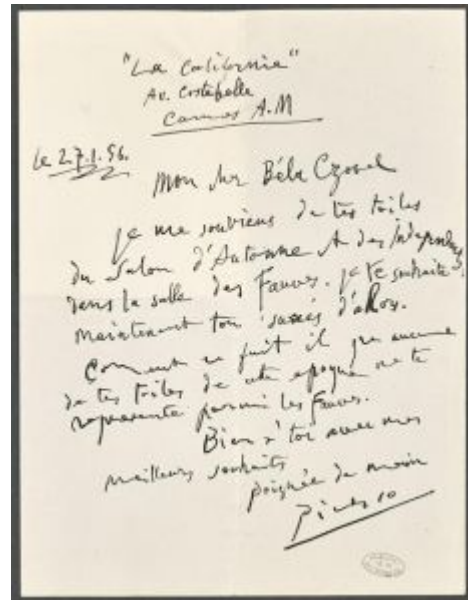 "La Californie"
Av. Costebelle
Cannes A.M
le 27.1.56.
Mon cher Béla Czobel
je me souviens de tes toiles
du Salon d'Automne et des Indépendants
dans la salle des Fauves. je te souhaite
maintenant ton succès d'alors.
Comment se fait il que aucune
de tes toiles de cette epoque ne te
represente parmi les Fauves.
Bien à toi avec mes
meilleurs souhaits
poignée de main
Picasso